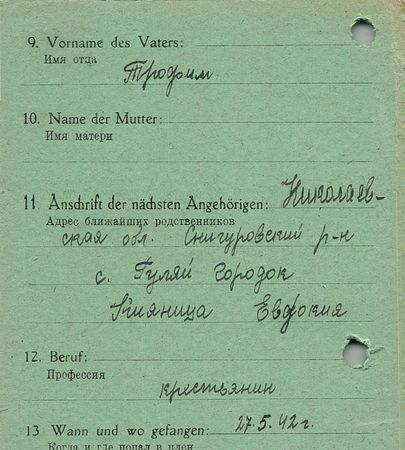 9. Vorname des Vaters:
Имя отца
Трофим
10. Name der Mutter:
Имя матери
11. Anschrift der nächsten Angehörigen: Николаев-
Адрес ближайших родственников
ская обл. Снигуровский р-н
с. Гуляй Городок
Евфокия
12. Beruf:
Профессия
крестьянин
13 Wann und wo gefangen: 27.5.42 г.
Когда и где попал в плен